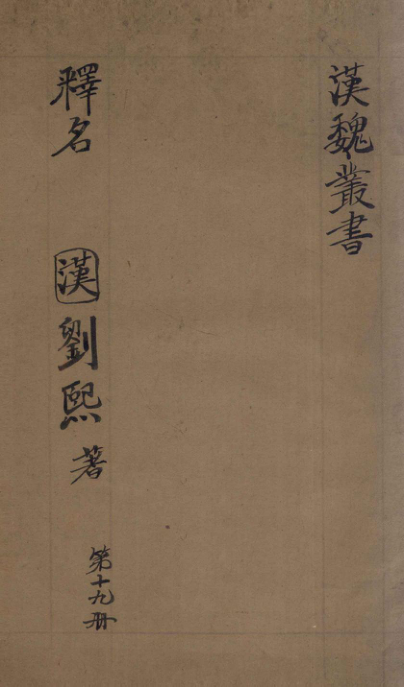 漢魏叢書
釋名 漢 劉熙 著 第十九册